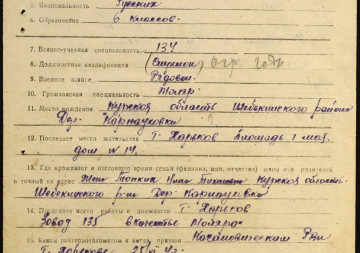 5. Национальность Русский
6. Образование 6 классов.
7. Военно-учетная специальность 134
8. Должностная квалификация (Стрелок) огр. годн
9. Воинское звание Рядовой
10. Гражданская специальность Токарь.
11. Место рождения Курская область Шебекинского района
Дер. Карнауховка
12. Последнее место жительства г. Харьков Площадь 1 мая
дом № 14.
13. Где проживают в настоящее время семья (фамилия, имя, отчество) или родителей
и точный их адрес Курская область.
Шебекинского р-на Дер Карнауховка
14. Последнее место работы и должность г. Харьков
Завод 135 в качестве токаря
15. Каким райвоенкоматом и когда призван РВК
г. Харькова